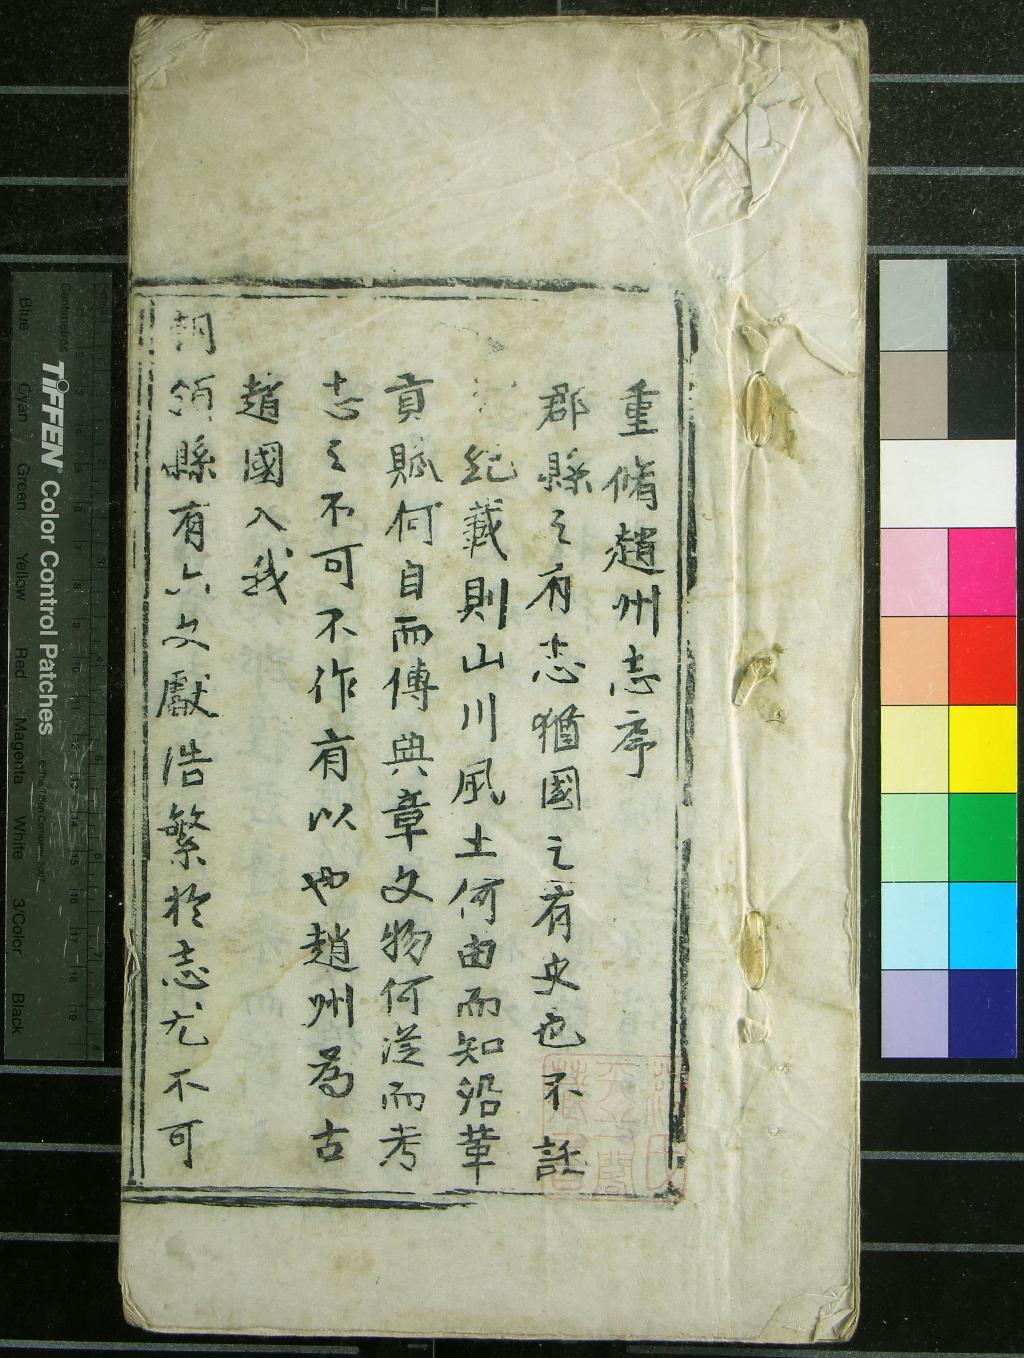 重脩趙州志序
郡縣之有志猶國之有史也不註
紀載則山川風土何由而知沿革
貢賦何自而傳典章文物何從而考
志之不可不作有以也趙州為古
趙國入我
朝領縣有六文獻浩繁於志尤不可
藏書
天一閣
TIFFEN Color Control Patches
Centimetres
Blue Cyan Green Yellow Red Magenta White 3/Color Black